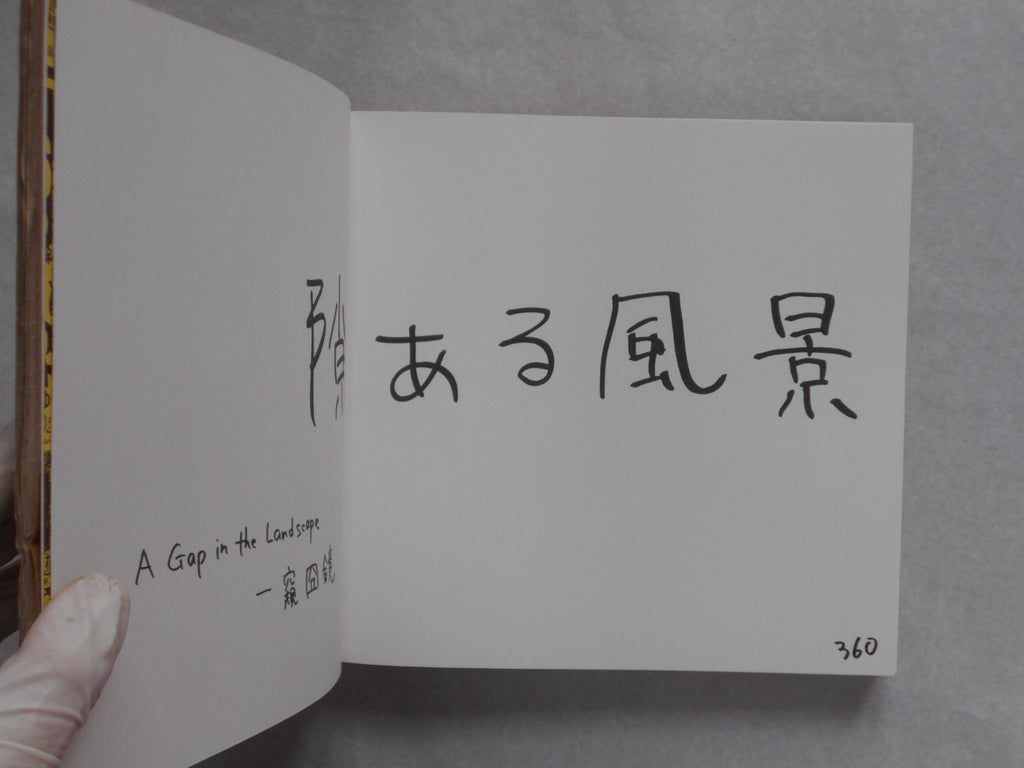 隙ある風景
A Gap in the Landscape
一窺囧鏡
360